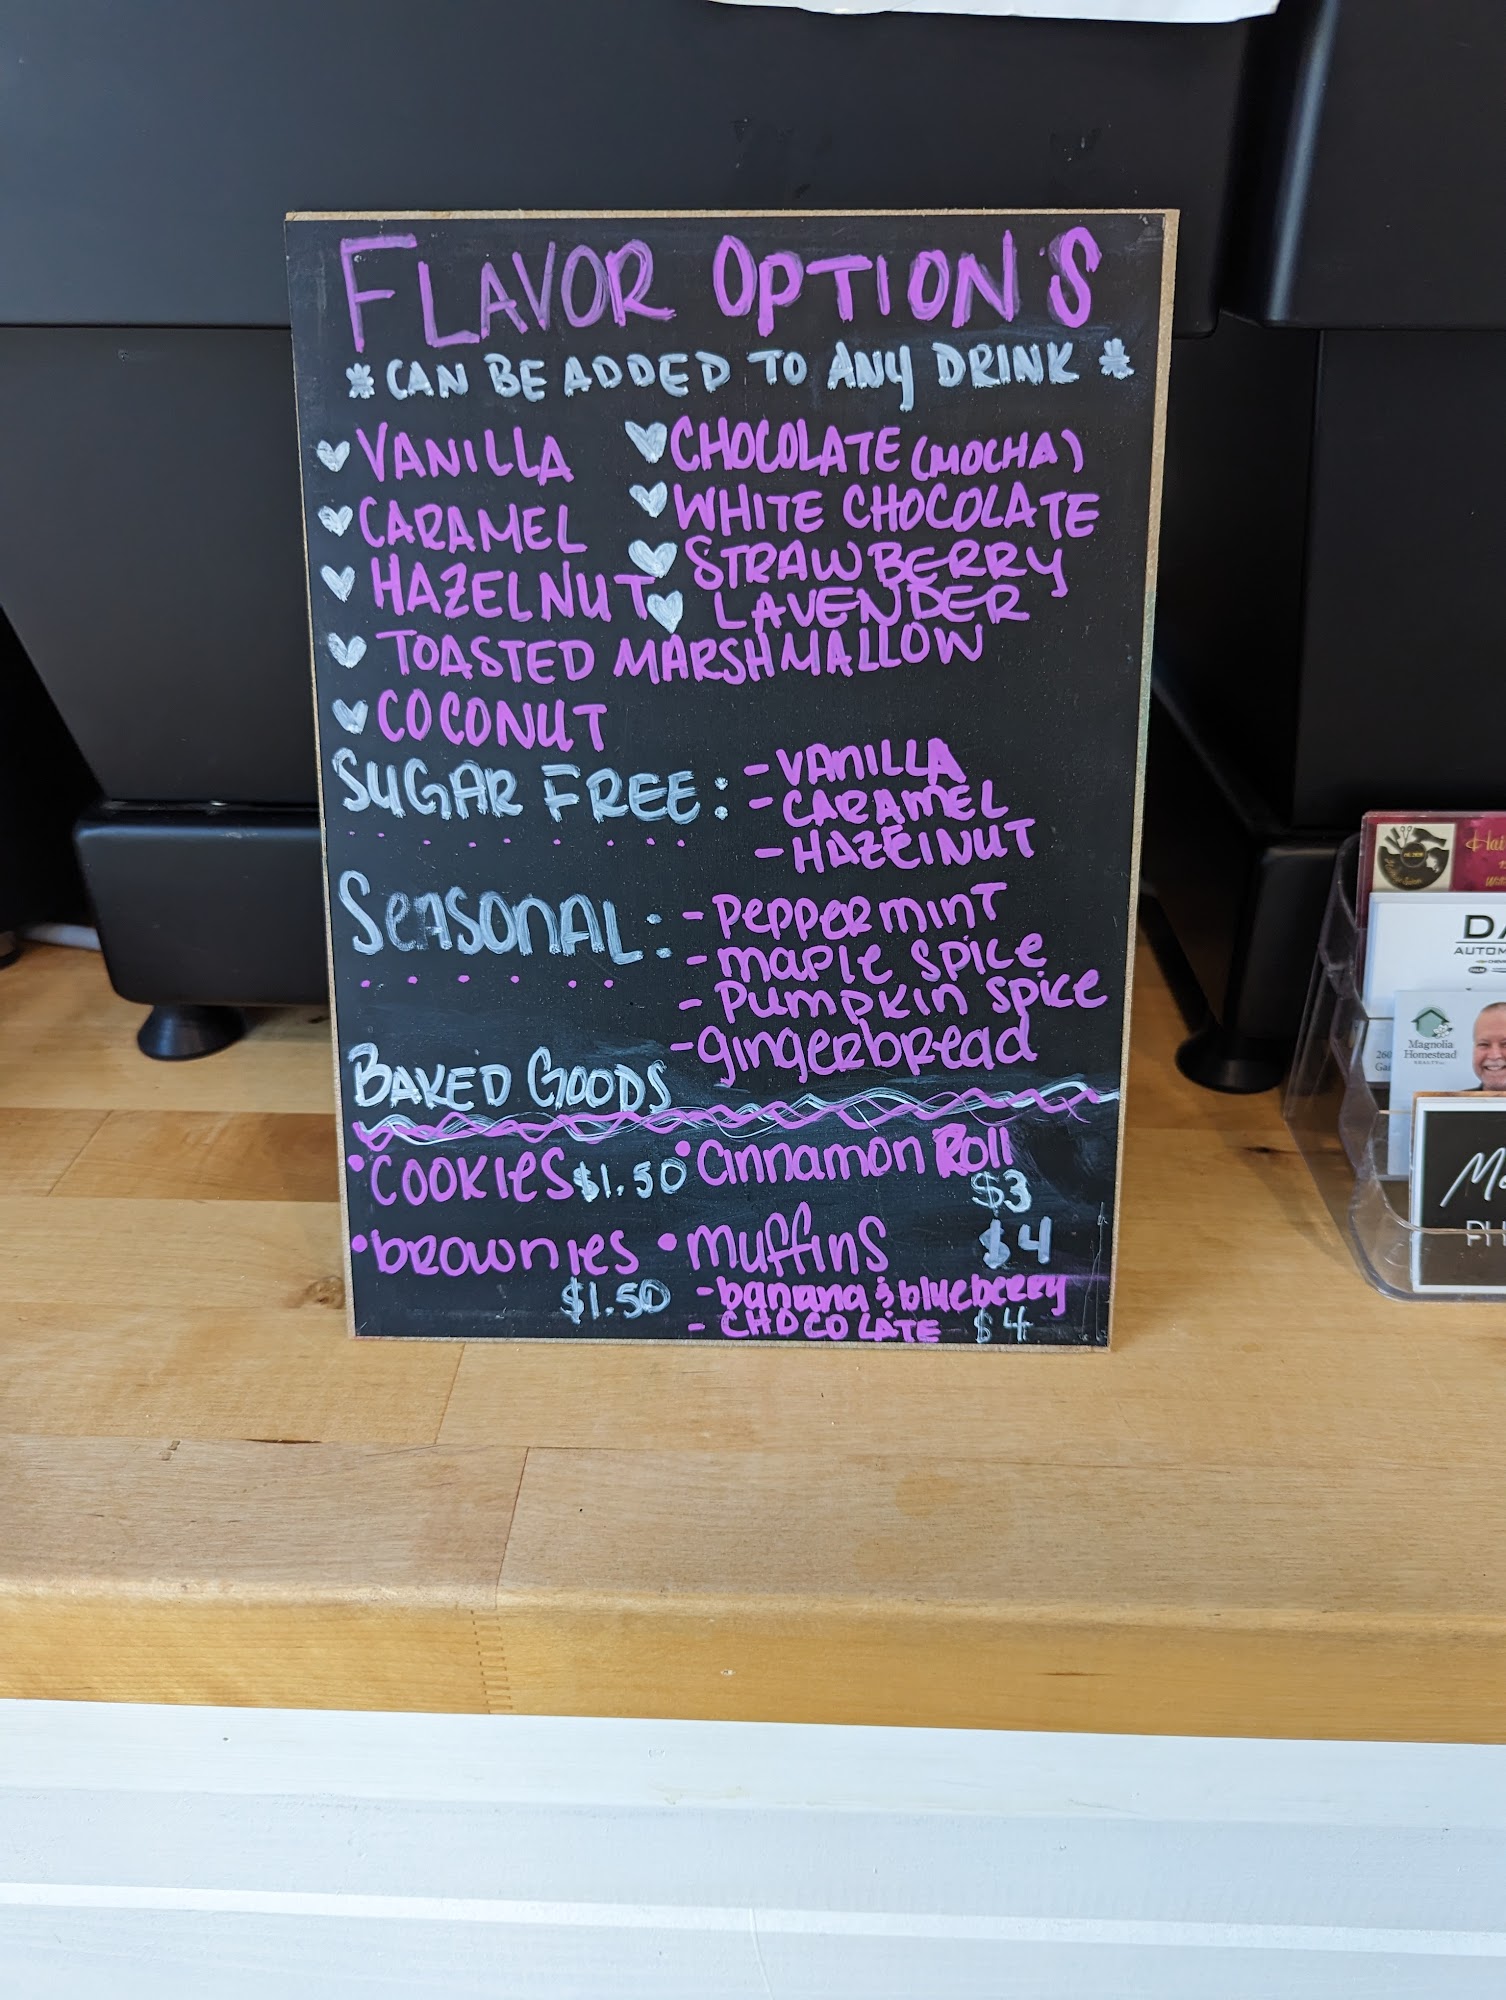 FLAVOR OPTIONS
*CAN BE ADDED TO ANY DRINK*
VANILLA
CARAMEL
HAZELNUT
TOASTED MARSHMALLOW
COCONUT
CHOCOLATE (MOCHA)
WHITE CHOCOLATE
STRAWBERRY
LAVENDER
SUGAR FREE:
- VANILLA
- CARAMEL
- HAZELNUT
SEASONAL:
- PEPPERMINT
- maple spice
- Pumpkin spice
- gingerbread
BAKED GOODS
• COOKIES $1.50
• Cinnamon Roll
$3
• brownies
$1.50
• muffins $4
- banana & blueberry
- CHOCOLATE $4
Magnolia
Homestead